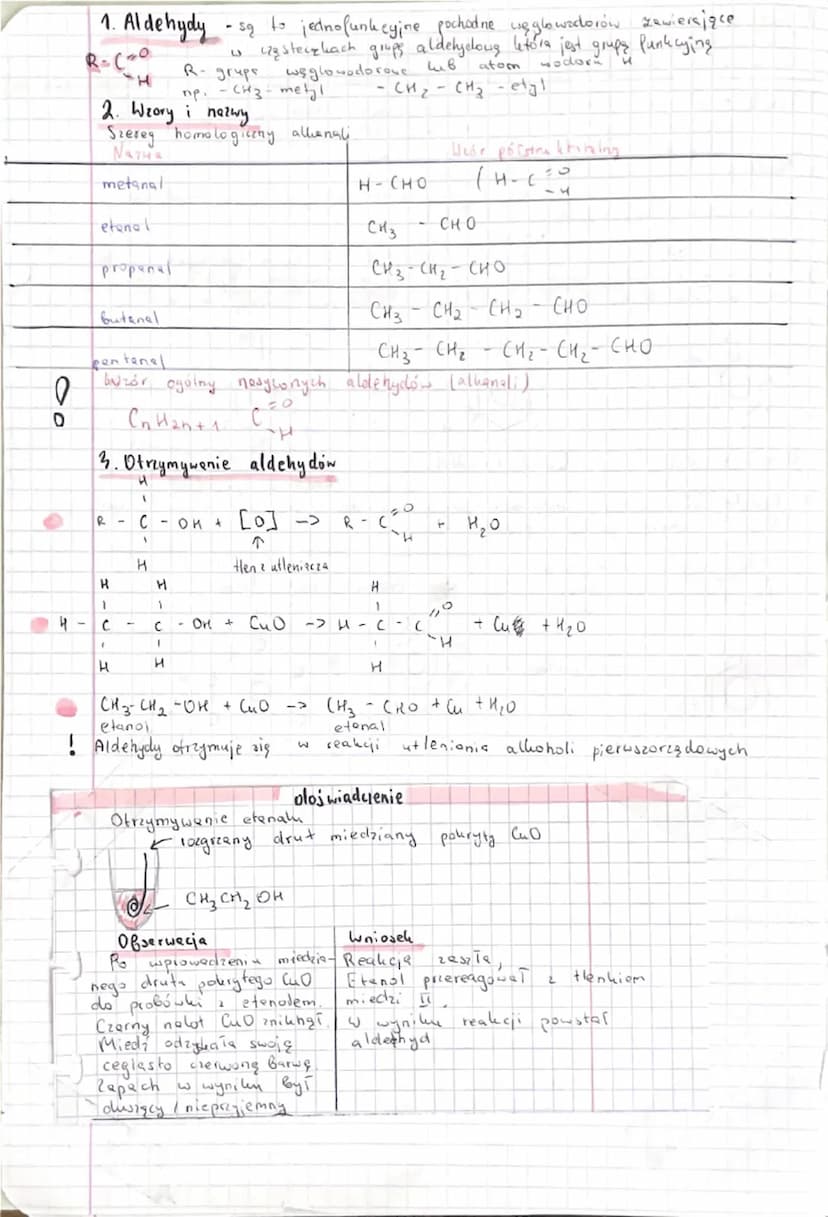 1. Aldehydy - są to jednofunkcyjne pochodne węglowodorów zawierające
w cząsteczkach grupę aldehydową która jest grupą funkcyjną
R-C=O
-H
R- grupa węglowodorowa lub atom wodoru H
np. -CH3- metyl - CH2 - CH3 - etyl
2. Wzory i nazwy
Szereg homologiczny alkanali
Nazwa Wzór półstrukturalny
metanal H-CHO ( H-C=O
-H
etanal CH3 - CHO
propanal CH3-CH2-CHO
butanal CH3 - CH2 - CH2 - CHO
pentanal CH3 - CH2 - CH2- CH2- CHO
! wzór ogólny nasyconych aldehydów (alkanali)
CnH2n+1 C=O
-H
3. Otrzymywanie aldehydów
H
R - C - OH + [O] -> R - C=O + H2O
H
H tlen z utleniacza
H H H
H - C - C - OH + CuO -> H - C - C=O + Cu + H2O
H
H H H
CH3-CH2-OH + CuO -> CH3 - CHO + Cu + H2O
etanol etanal
! Aldehydy otrzymuje się w reakcji utleniania alkoholi pierwszorzędowych
doświadczenie
Otrzymywanie etanalu
rozgrzany drut miedziany pokryty CuO
CH3CH2OH
Obserwacja
Po wprowadzeniu miedzia-
nego drutu pokrytego CuO
do probówki z etanolem.
Czarny nalot CuO zniknął.
Miedź odzyskała swoją
ceglasto czerwoną barwę
Zapach w wyniku był
duszący / nieprzyjemny
Wniosek
Reakcja zaszła,
Etanol przereagował z tlenkiem
miedzi II.
W wyniku reakcji powstał
aldehyd